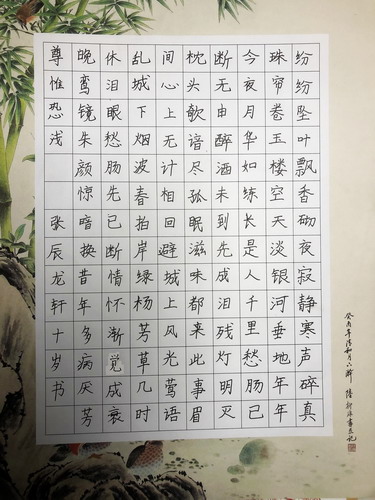 纷纷坠叶飘香砌夜寂静寒声碎真
珠帘卷玉楼空天淡银河垂地年年
今夜月华如练长是人千里愁肠已
断无由醉酒未到先成泪残灯明灭
枕头欹谙尽孤眠滋味都来此事眉
间心上无计相回避城上风光莺语
乱城下烟波春拍岸绿杨芳草几时
休泪眼愁肠先已断情怀渐觉成衰
晚鸾镜朱颜惊暗换昔年多病厌芳
尊惟恐浅 张辰龙轩十岁书